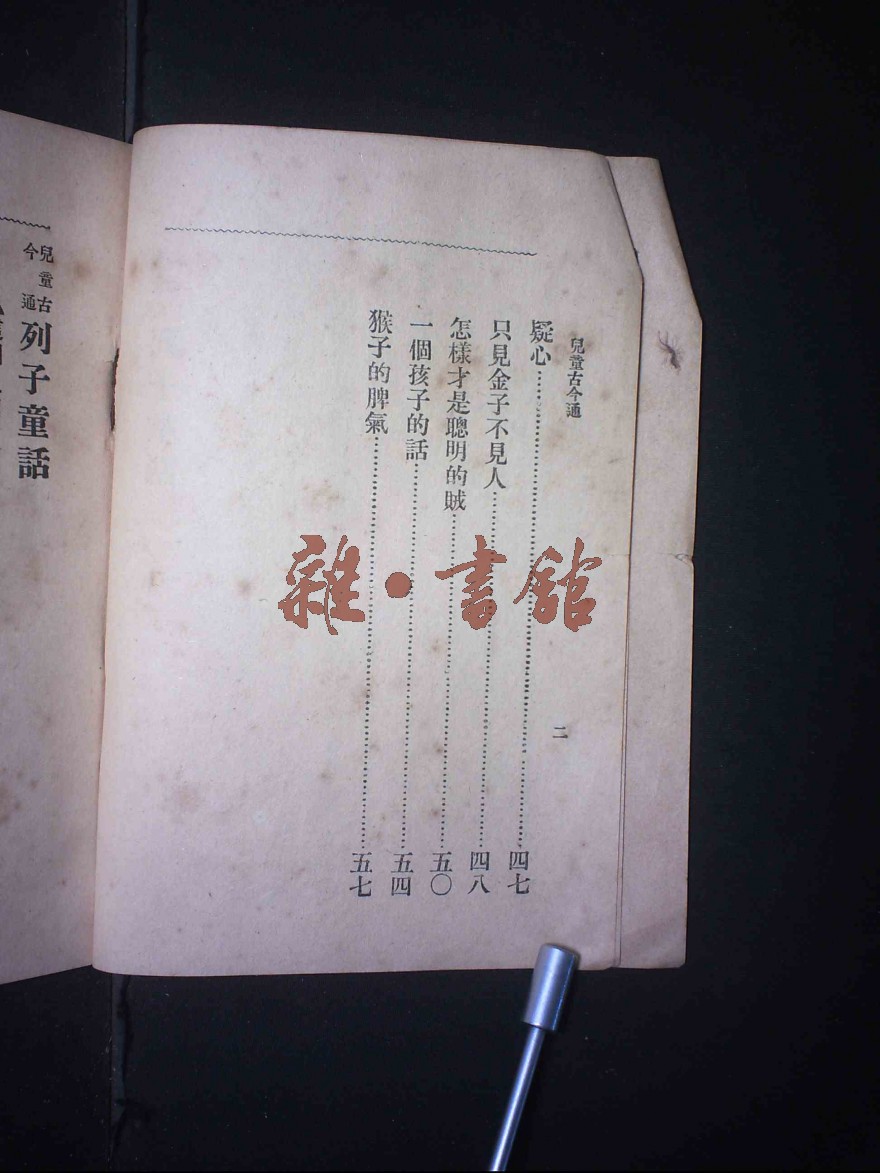 兒童古今通
二
疑心……四七
只見金子不見人……四八
怎樣才是聰明的賊……五〇
一個孩子的話……五四
猴子的脾氣……五七
兒童古今通
列子童話
雜·書館